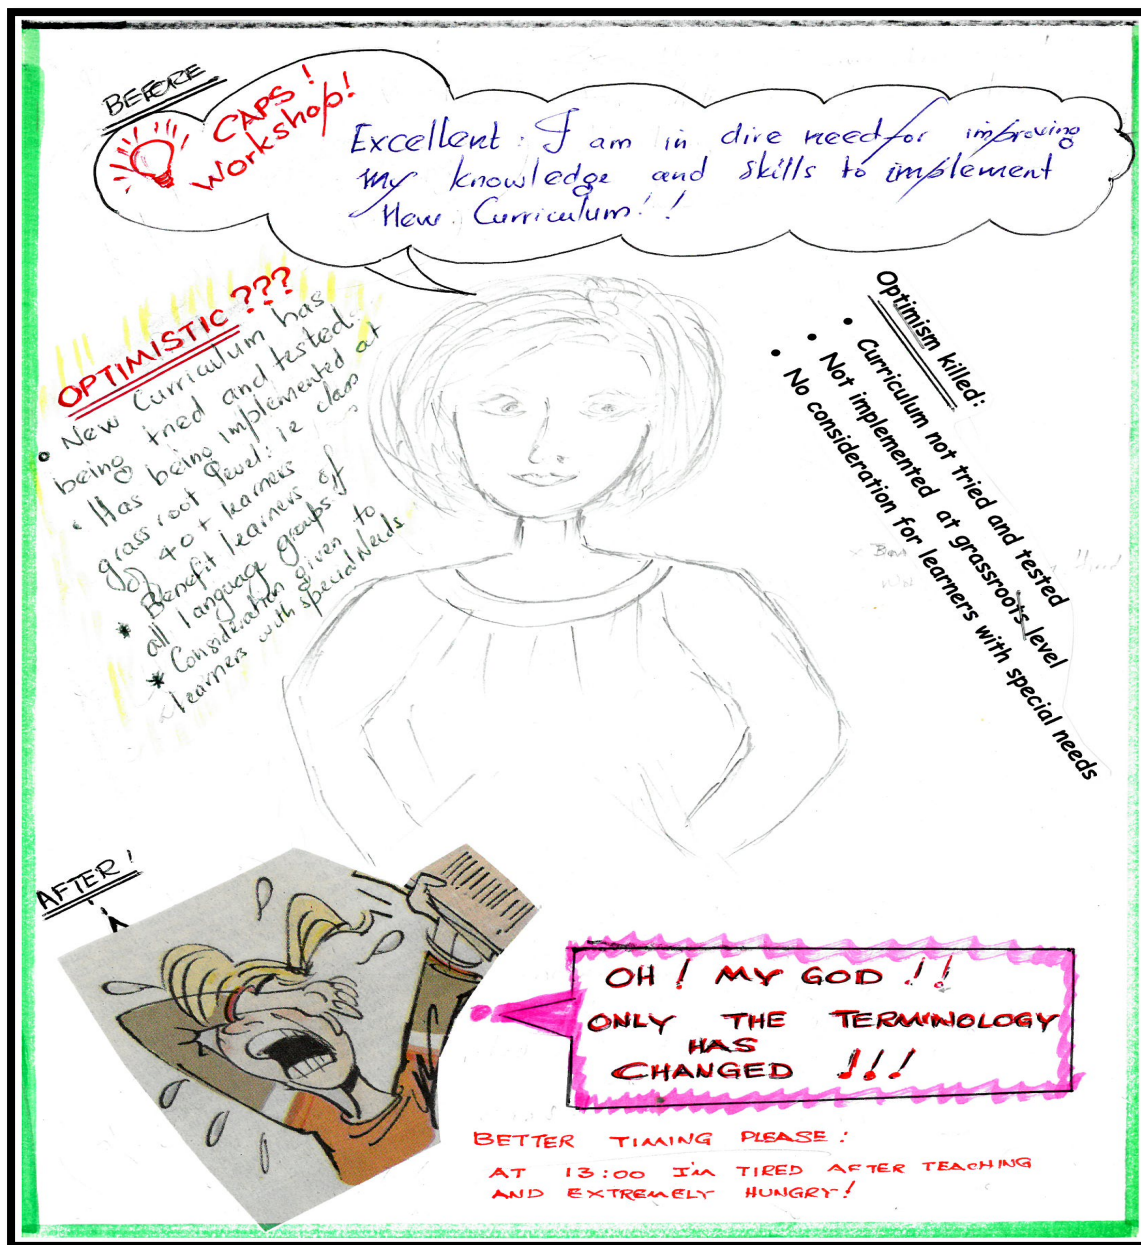 BEFORE
CAPS!
Workshop!
Excellent: I am in dire need for improving
my knowledge and skills to implement
New Curriculum!!
OPTIMISTIC ???
• New Curriculum has
being tried and tested.
• Has being implemented at
grass root level: ie class
of 40+ learners
* Benefit learners of
all language groups
* Consideration given to
learners with special Needs
Optimism killed:
• Curriculum not tried and tested
• Not implemented at grassroots level
• No consideration for learners with special needs
AFTER!
OH! MY GOD!!
ONLY THE TERMINOLOGY
HAS
CHANGED !!!
BETTER TIMING PLEASE:
AT 13:00 I'm TIRED AFTER TEACHING
AND EXTREMELY HUNGRY!